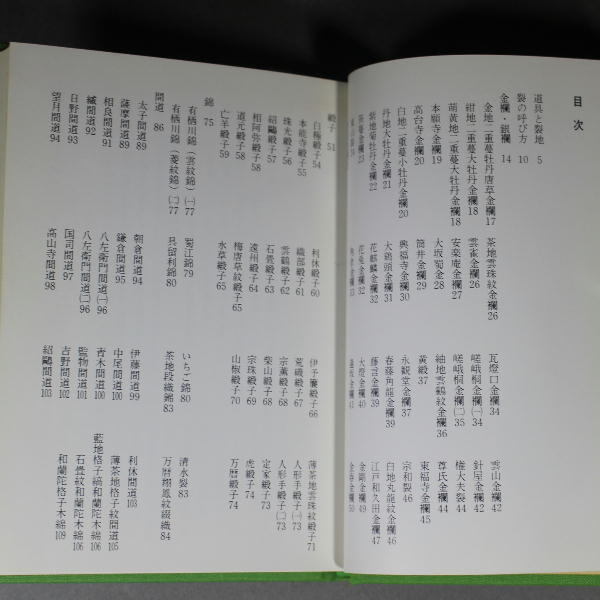 目次
道具と裂地 5
裂の呼び方 10
金襴・銀襴 14
金地二重蔓牡丹唐草金襴17
紺地二重蔓大牡丹金襴18
萌黄地二重蔓大牡丹金襴18
本願寺金襴19
高台寺金襴20
白地二重蔓小牡丹金襴20
丹地大牡丹金襴21
紫地菊牡丹金襴22
茶地雲珠紋金襴26
雲雀金襴26
安楽庵金襴27
大坂蜀金28
筒井金襴29
興福寺金襴30
大鶏頭金襴31
花麒麟金襴32
花兎金襴32
瓦燈口金襴34
嵯峨桐金襴㈠34
嵯峨桐金襴㈡35
紬地雲鶴紋金襴37
黄緞37
永観堂金襴37
春藤角龍金襴39
大燈金襴40
雲山金襴42
針屋金襴42
権大夫裂44
尊氏金襴44
東福寺金襴45
宗和裂46
白地丸龍紋金襴46
江戸和久田金襴47
金剛金襴49
金春金襴50
緞子 51
白極緞子54
本能寺緞子55
珠光緞子56
紹鷗緞子57
相阿弥緞子58
道元緞子58
亡羊緞子59
利休緞子60
織部緞子61
雲鶴緞子62
石畳緞子63
遠州緞子64
梅唐草紋緞子65
水草緞子65
伊予簾緞子66
荒磯緞子67
宗薫緞子68
柴山緞子68
宗珠緞子69
山椒緞子70
薄茶地雲珠紋緞子71
人形手緞子㈠73
人形手緞子㈡73
定家緞子73
虎緞子74
万暦緞子74
錦 75
有栖川錦(雲紋錦)㈠77
有栖川錦(菱紋錦)㈡77
蜀江錦79
具留利錦80
いちご錦80
茶地段織錦83
清水裂83
万暦翔鳳紋綴織84
間道 86
太子間道89
薩摩間道89
相良間道91
縅間道92
日野間道93
望月間道94
朝倉間道94
鎌倉間道95
八左衛門間道㈠96
八左衛門間道㈡96
国司間道97
高山寺間道98
伊藤間道99
中尾間道100
青木間道100
監物間道101
吉野間道102
紹鷗間道103
利休間道103
薄茶地格子紋間道105
藍地格子縞和蘭陀木綿106
石畳紋和蘭陀木綿106
和蘭陀格子木綿109